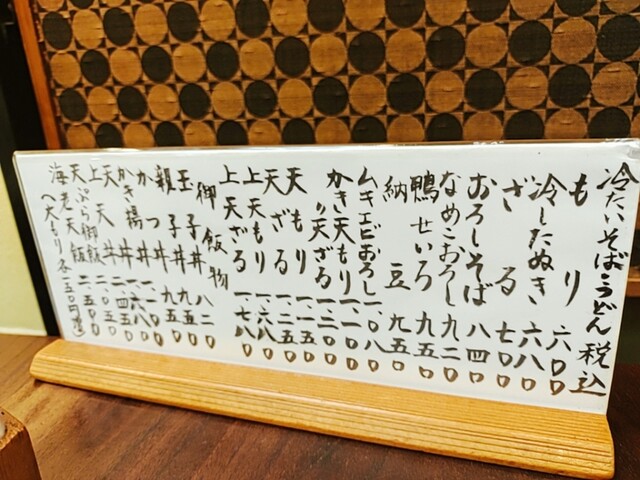 冷たいそば・うどん 税込
もり 六〇〇
冷したぬき 六八〇
ざる 七〇〇
おろしそば 八四〇
なめこおろし 九二〇
鴨せいろ 九五〇
納豆 九五〇
ムキエビおろし 一、〇八〇
かき天もり 一、一〇〇
〃天ざる 一、二〇〇
天もり 一、一五〇
天ざる 一、二五〇
上天もり 一、六八〇
上天ざる 一、七八〇
御飯物
玉子丼 八二〇
親子丼 九五〇
かつ丼
かき揚丼
天丼
上天丼
天ぷら御飯
海老天飯
(大もり各一五〇円増)